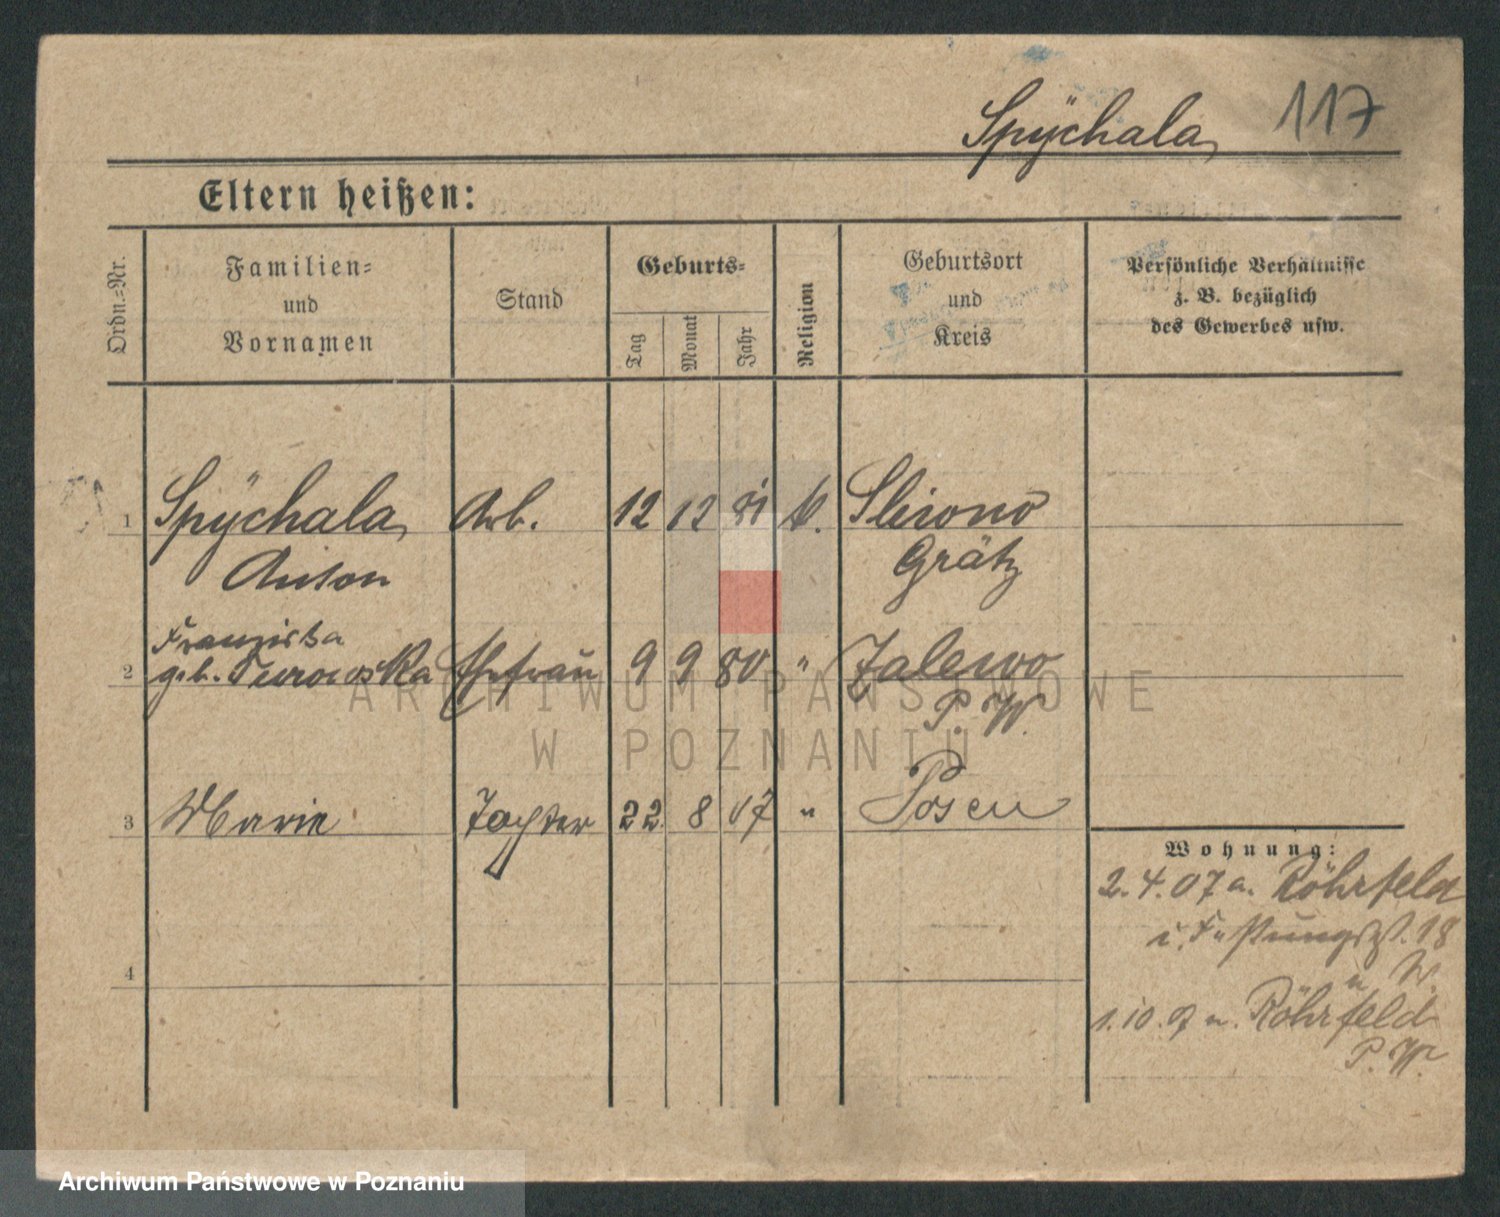 Spÿchala, 117
Eltern heißen:
Ordn.=Nr.
Familien=
und
Vornamen
Stand
Geburts=
Tag
Monat
Jahr
Religion
Geburtsort
und
Kreis
Persönliche Verhältnisse
z. B. bezüglich
des Gewerbes usw.
1 Spÿchala, Arb. 12 12 81 k.
Anton Grätz
Franziska
2 geb. Ehefrau 9 9 80 " Zalewo
P. W.
3 Marie Tochter 22. 8 07 " Posen
4
Wohnung:
2. 4. 07 a. Röhrfeld
18
u. W.
1. 10. 07 n. Röhrfeld
P. W.
ARCHIWUM PAŃSTWOWE
W POZNANIU
Archiwum Państwowe w Poznaniu